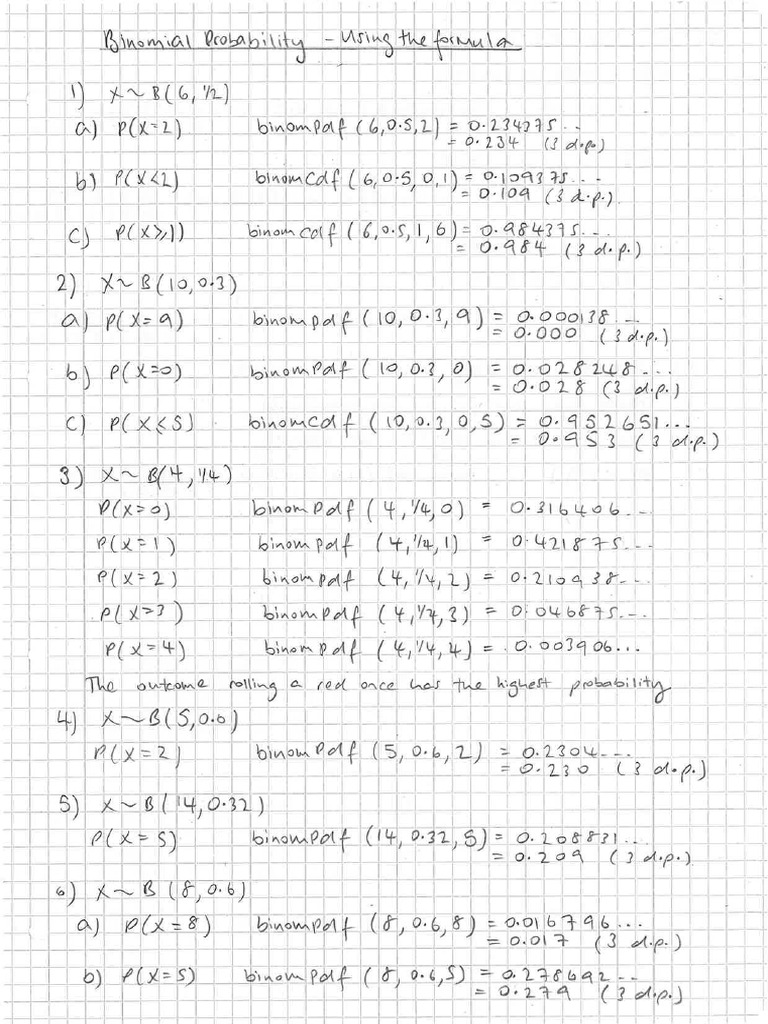 Binomial Probability - Using the formula
1) X~B(6, 1/2)
a) P(X=2) binompdf (6,0.5,2) = 0.234375...
= 0.234 (3 d.p.)
b) P(X<2) binomcdf (6,0.5,0,1) = 0.109375...
= 0.109 (3 d.p.)
c) P(X≥1) binomcdf (6,0.5,1,6) = 0.984375...
= 0.984 (3 d.p.)
2) X~B(10,0.3)
a) P(X=9) binompdf (10,0.3,9) = 0.000138...
= 0.000 (3 d.p.)
b) P(X=0) binompdf (10,0.3,0) = 0.028248...
= 0.028 (3 d.p.)
c) P(X≤5) binomcdf (10,0.3,0,5) = 0.952651...
= 0.953 (3 d.p.)
3) X~B(4,1/4)
P(X=0) binompdf (4,1/4,0) = 0.316406...
P(X=1) binompdf (4,1/4,1) = 0.421875...
P(X=2) binompdf (4,1/4,2) = 0.210938...
P(X=3) binompdf (4,1/4,3) = 0.046875...
P(X=4) binompdf (4,1/4,4) = 0.003906...
The outcome rolling a red once has the highest probability
4) X~B(5,0.6)
P(X=2) binompdf (5,0.6,2) = 0.2304...
= 0.230 (3 d.p.)
5) X~B(14,0.32)
P(X=5) binompdf (14,0.32,5) = 0.208831...
= 0.209 (3 d.p.)
6) X~B (8,0.6)
a) P(X=8) binompdf (8,0.6,8) = 0.016796...
= 0.017 (3 d.p.)
b) P(X=5) binompdf (8,0.6,5) = 0.278692...
= 0.279 (3 d.p.)